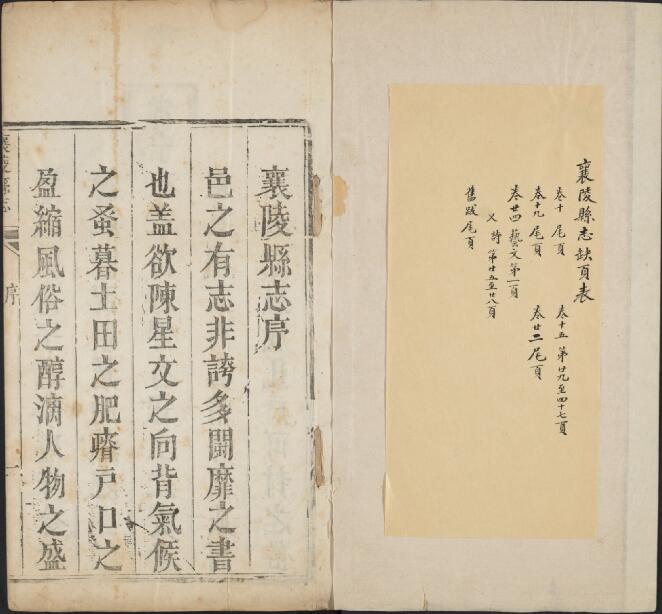 襄陵縣志缺頁表
卷十 尾頁 卷十五 第廿九至四十七頁
卷十九 尾頁 卷廿二 尾頁
卷廿四 藝文第一頁
又 詩 第廿五至廿八頁
舊跋尾頁
襄陵縣志序
邑之有志非誇多鬪靡之書
也盖欲陳星文之向背氣候
之蚤暮土田之肥瘠戸口之
盈縮風俗之醇漓人物之盛
襄陵縣志
序
一